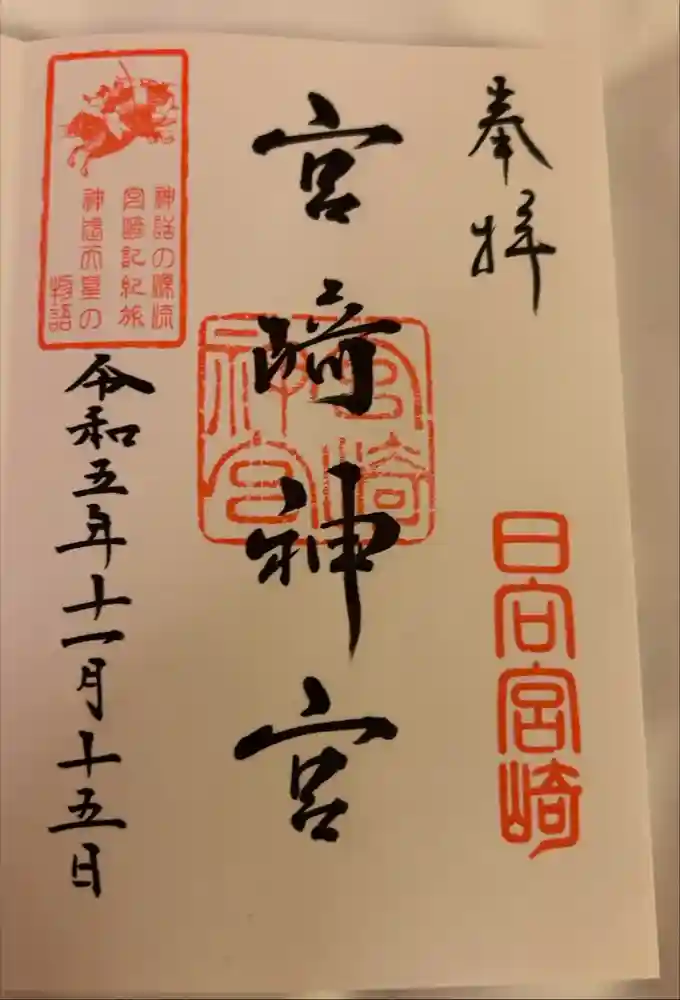 奉拝
日向宮崎
宮崎神宮
宮崎神宮
神話の源流
宮崎記紀旅
神武天皇の
物語
令和五年十一月十五日